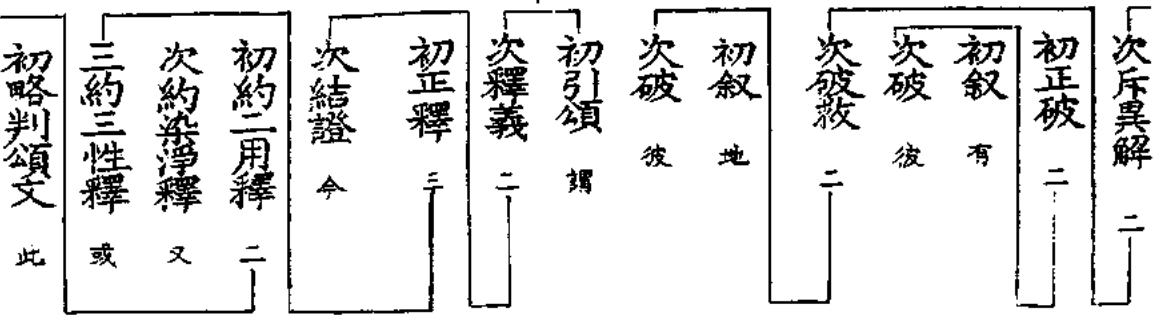 次斥異解 二
初正破 二
初叙 有
次破 彼
次破救 二
初叙 地
次破 彼
初引頌 謂
次釋義 二
初正釋 三
次結證 今
初約二用釋 二
次約染淨釋 又
三約三性釋 或
初略判頌文 此